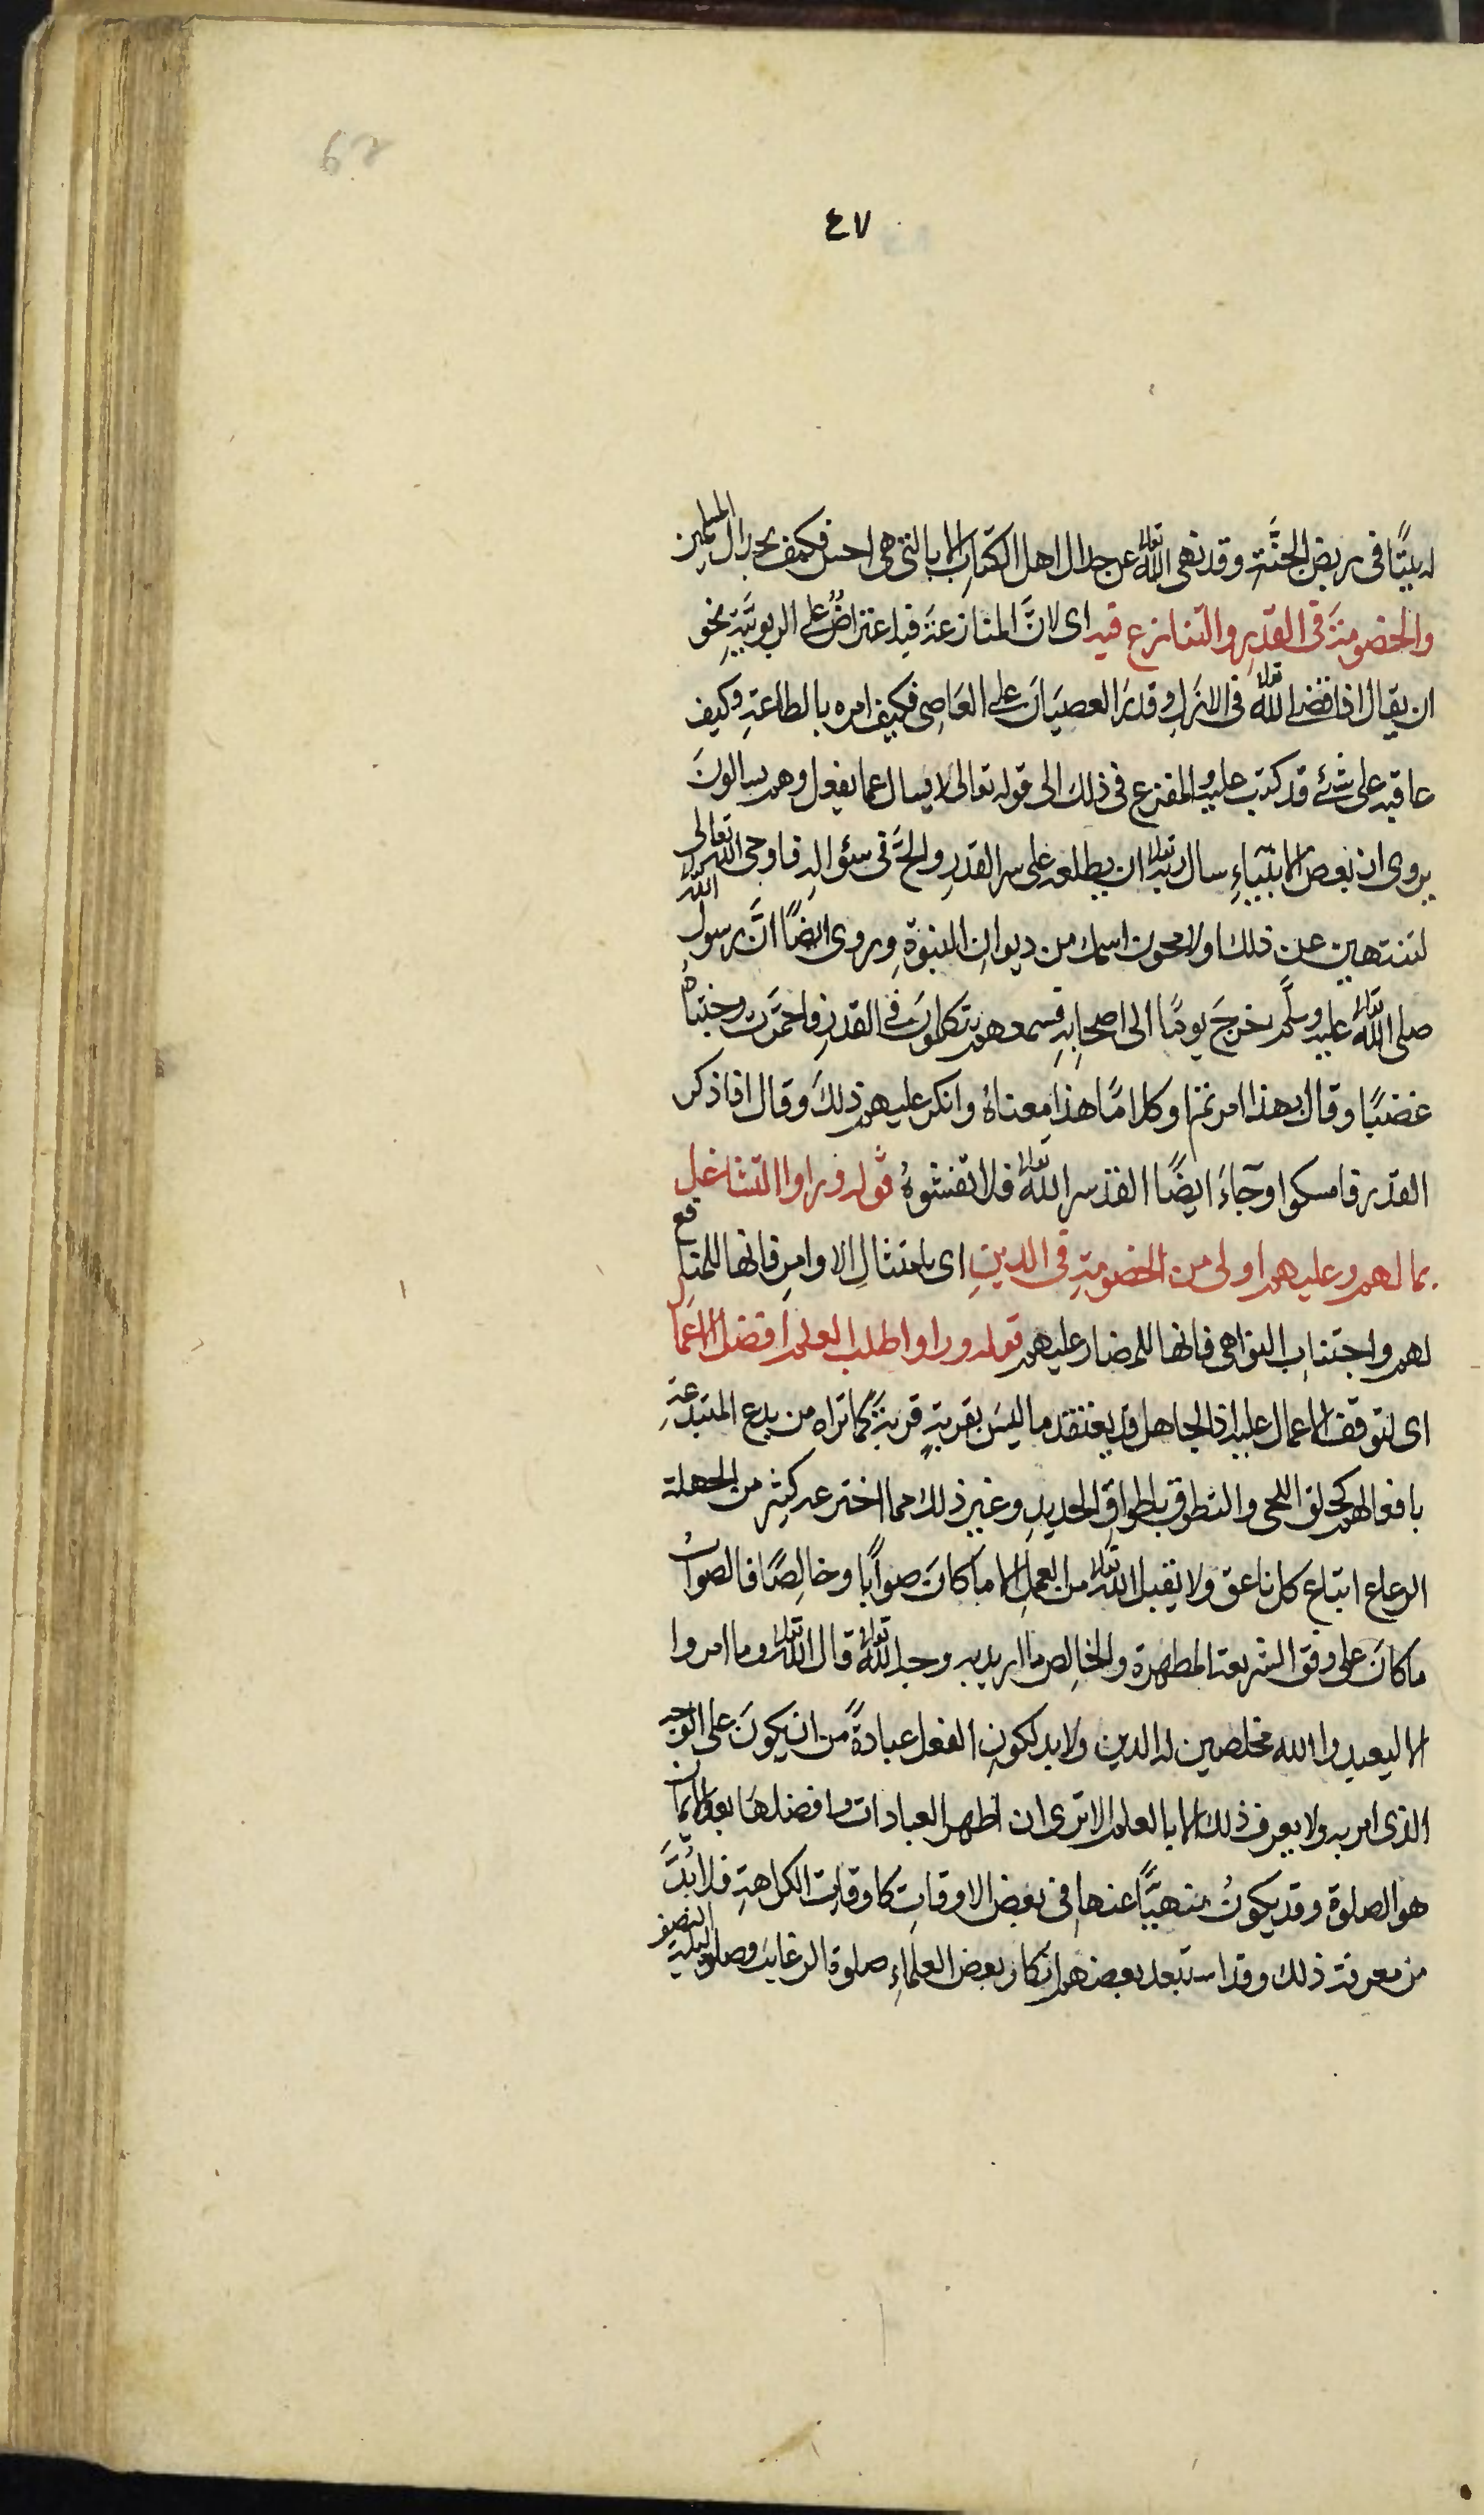 ٤٧
له بيتًا فى ربض الجنَّةِ وقد نهى الله تعالى عن جدال اهل الكتابِ الا بالتى هى احسن فكيف بجدال المسلمين
والخصومَةَ فى القدرِ والتنازع فيه اى لانَّ المنازعةَ فيه اعتراضٌ على الربوبيَّةِ نحو
ان يقال اذا قضى الله تعالى فى الازلِ وقدرَ العصيَانَ على العَاصِى فكيف امره بالطاعةِ وكيف
عاقبه على شئٍ قد كتب عليه والمفزع فى ذلك الى قوله تعالى لا يسال عما يفعل وهم يسالونَ
يروى ان بعض الانبيَاءِ سال ربه تعالى ان يطلعه على سر القدرِ والحَّ فى سئوالهِ فاوحى الله تعالى
لتنتهين عن ذلك اولامحون اسمك من ديوانِ النبوةِ وروى ايضًا انَّ رسول الله
صلى الله تعالى عليه وسلَّم خرجَ يومًا الى اصحابِهِ فسمعهم يتكلمونَ فى القدرِ فاحمرَّت وجنتاهُ
غضبًا وقال بهذا امرتم او كلامًا هذا معناهُ وانكر عليهم ذلكَ وقال اذا ذكر
القدر فامسكوا وجآءَ ايضًا القدر سر الله تعالى فلا تفشوهُ قوله وراوا التشاغل
بما لهم وعليهم اولى من الخصومةِ فى الدينِ اى بامتثالِ الاوامرِ فانها المنافع
لهم واجتنابِ النواهى فانها المضار عليهم قوله وراوا طلب العلم افضل الاعمال
اى لتوقف الاعمال عليه اذ الجاهل قد يعتقد ما ليسَ بقربةٍ قربةً كما تراه من بدع المبتدعةِ
بافعالهم كحلق اللحى والتطوق باطواقِ الحديدِ وغير ذلك مما اخترعه كثير من الجهلة
الرعاع اتباع كل ناعق ولا يقبل الله تعالى من العملِ الا ما كانَ صوابًا وخالِصًا فالصوابُ
ما كانَ على وفق الشريعة المطهرة والخالِص ما اريد به وجه الله تعالى قال الله تعالى وما امروا
الا ليعبدوا الله مخلصين له الدين ولا بد لكونِ الفعل عبادةً من ان يكونَ على الوجه
الذى امر به ولا يعرف ذلك الا بالعلم الا ترى ان اظهر العبادات وافضلهَا بعد الايمان
هو الصلوة وقد يكونُ منهيًّا عنها فى بعض الاوقاتِ كاوقاتِ الكراهةِ فلا بُدَّ
من معرفة ذلك وقد استبعد بعضهم انكار بعض العلماءِ صلوة الرغايب وصلوة ليلة النصف